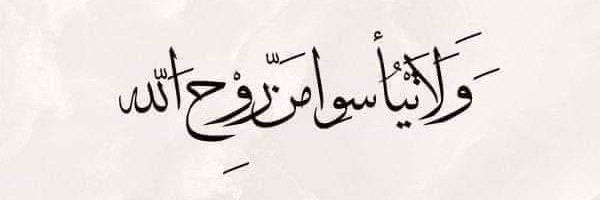 وَلَا تَيْأَسُوا مِن رَّوْحِ اللَّهِ